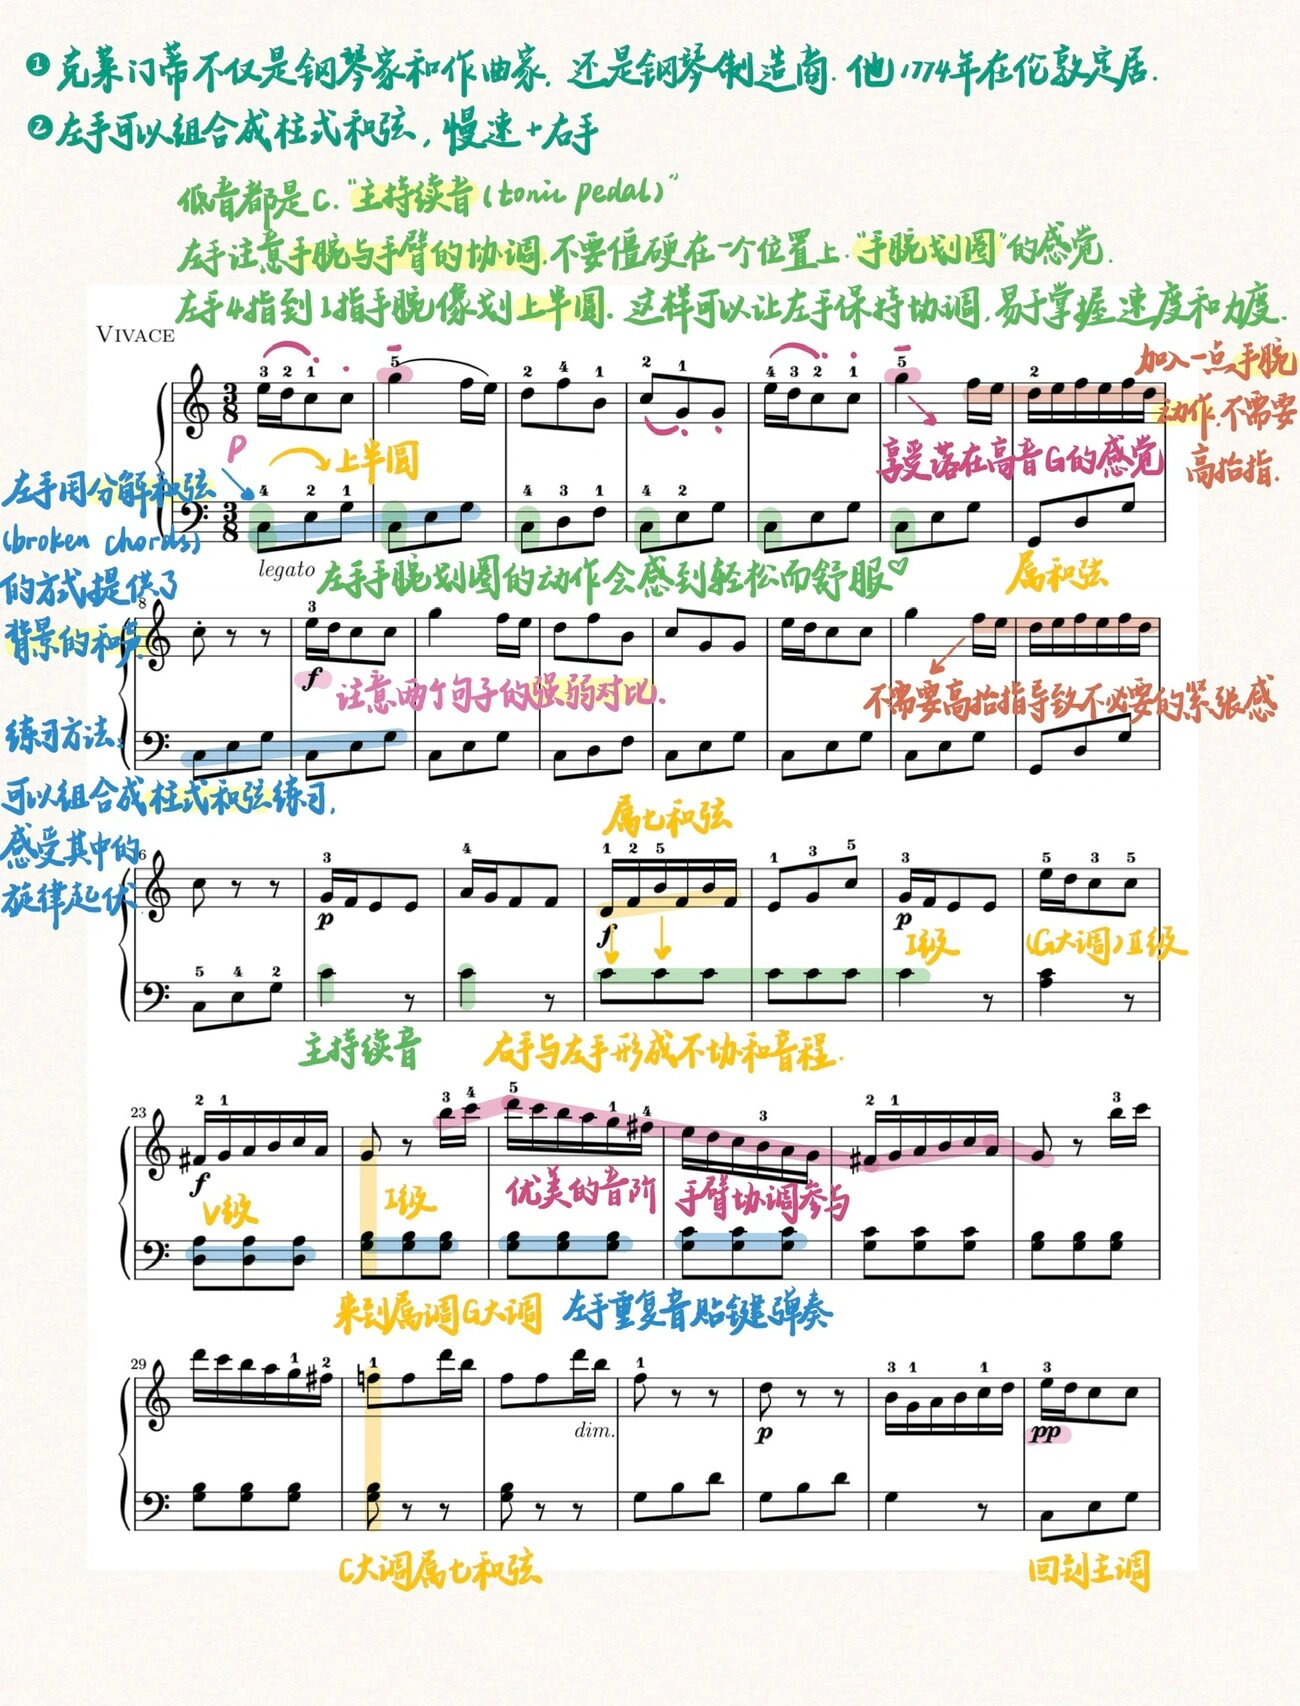 ❶克莱门蒂不仅是钢琴家和作曲家. 还是钢琴制造商. 他1774年在伦敦定居.
❷左手可以组合成柱式和弦, 慢速+右手
低音都是C. "主持续音(tonic pedal)"
左手注意手腕与手臂的协调.不要僵硬在一个位置上."手腕划圈"的感觉.
左手4指到1指手腕像划上半圆. 这样可以让左手保持协调,易于掌握速度和力度.
VIVACE
3 2 1 5 2 4 1 2 1 4 3 2 1 5 2
加入一点手腕
动作.不需要
高抬指.
P
上半圆
享受落在高音G的感觉
左手用分解和弦
(broken chords)
的方式提供了
背景的和声.
3
8
3
8
4 2 1 4 3 1 4 2
legato
左手手腕划圈的动作会感到轻松而舒服♡
属和弦
8
3
f
注意两个句子的强弱对比.
不需要高抬指导致不必要的紧张感
练习方法:
可以组合成柱式和弦练习,
感受其中的
旋律起伏
属七和弦
6
3 4 1 2 5 1 3 5 3 5 3 5
p
f
p
I级
(G大调)II级
5 4 2
主持续音
右手与左手形成不协和音程.
23
2 1 3 4 5 1 4 3 2 1 3
f
V级
I级
优美的音阶
手臂协调参与
来到属调G大调
左手重复音贴键弹奏
29
1 2 1 1 3 1 1 3
dim.
p
pp
C大调属七和弦
回到主调